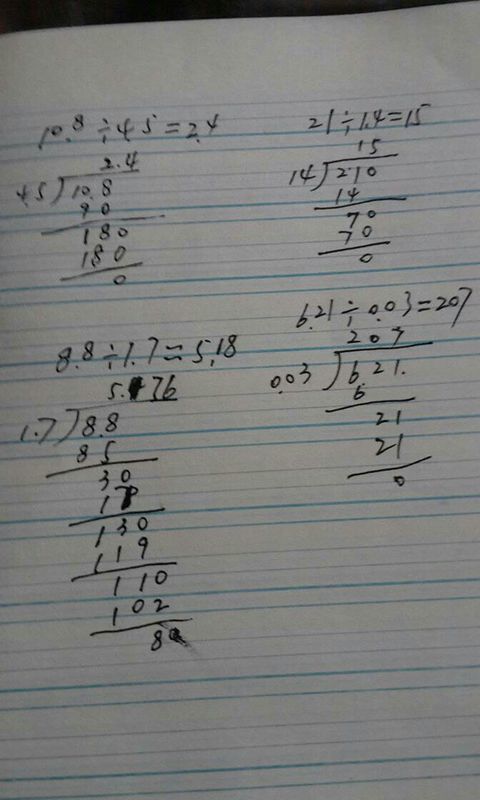 10.8÷4.5=2.4
2.4
4.5)10.8
90
180
180
0
21÷1.4=15
15
14)210
14
70
70
0
8.8÷1.7≈5.18
5.176
1.7)8.8
85
30
17
130
119
110
102
8
6.21÷0.03=207
207
0.03)6.21.
6
21
21
0